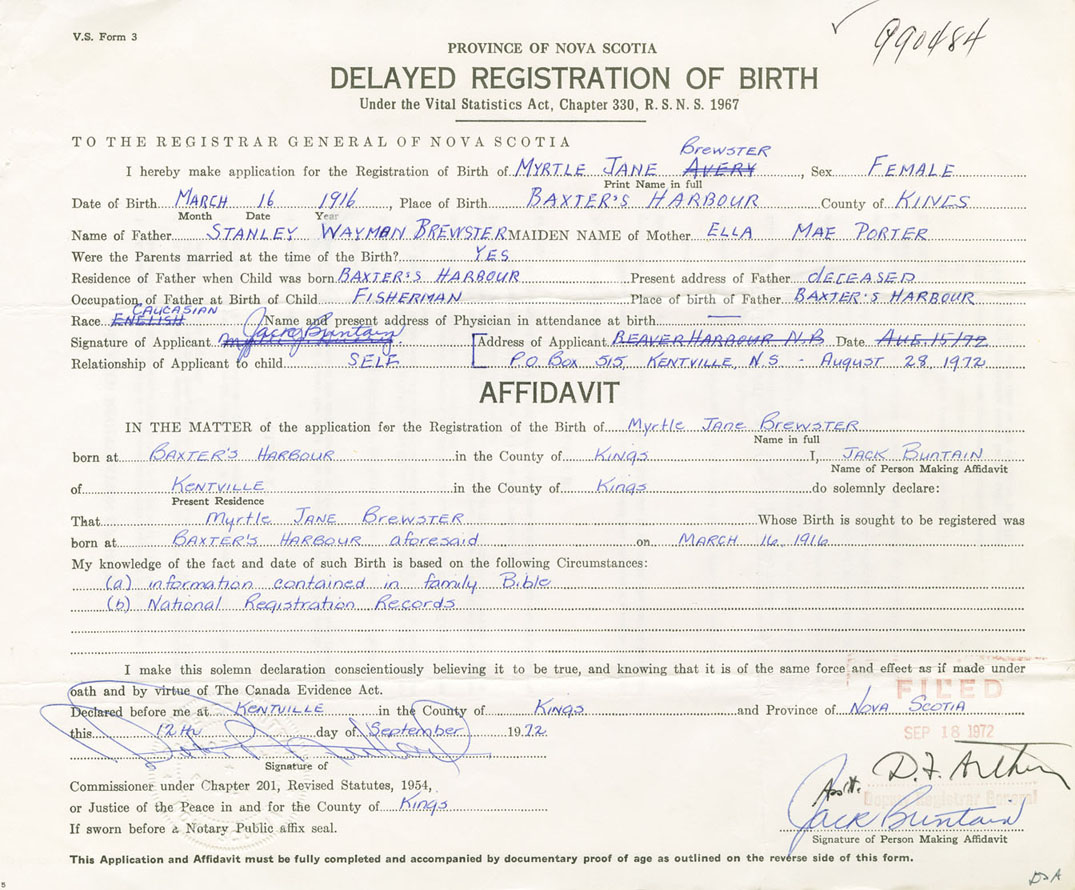 V.S. Form 3
990484
PROVINCE OF NOVA SCOTIA
DELAYED REGISTRATION OF BIRTH
Under the Vital Statistics Act, Chapter 330, R.S.N.S. 1967
TO THE REGISTRAR GENERAL OF NOVA SCOTIA
Brewster
I hereby make application for the Registration of Birth of MYRTLE JANE AVERY, Sex FEMALE
Print Name in full
Date of Birth MARCH 16 1916, Place of Birth BAXTER'S HARBOUR County of KINGS
Month Date Year
Name of Father STANLEY WAYMAN BREWSTER MAIDEN NAME of Mother ELLA MAE PORTER
Were the Parents married at the time of the Birth? YES
Residence of Father when Child was born BAXTER'S HARBOUR Present address of Father DECEASED
Occupation of Father at Birth of Child FISHERMAN Place of birth of Father BAXTER'S HARBOUR
CAUCASIAN
Race ENGLISH Name and present address of Physician in attendance at birth —
Jack Buntain
Signature of Applicant Address of Applicant BEAVER HARBOUR N.B Date AUG. 15/72
Relationship of Applicant to child SELF P.O. BOX 515, KENTVILLE, N.S. - AUGUST 28, 1972
AFFIDAVIT
IN THE MATTER of the application for the Registration of the Birth of Myrtle Jane Brewster
Name in full
born at BAXTER'S HARBOUR in the County of Kings I, JACK BUNTAIN
Name of Person Making Affidavit
of KENTVILLE in the County of Kings do solemnly declare:
Present Residence
That Myrtle JANE Brewster Whose Birth is sought to be registered was
born at BAXTER'S HARBOUR aforesaid on MARCH 16, 1916
My knowledge of the fact and date of such Birth is based on the following Circumstances:
(a) information contained in family Bible
(b) National Registration Records
I make this solemn declaration conscientiously believing it to be true, and knowing that it is of the same force and effect as if made under
oath and by virtue of The Canada Evidence Act.
FILED
Declared before me at KENTVILLE in the County of Kings and Province of NOVA SCOTIA
this 12th day of September 1972
SEP 18 1972
Signature of
Commissioner under Chapter 201, Revised Statutes, 1954,
Ass't. D.F. Arthur
or Justice of the Peace in and for the County of Kings
Deputy Registrar General
Jack Buntain
If sworn before a Notary Public affix seal.
Signature of Person Making Affidavit
This Application and Affidavit must be fully completed and accompanied by documentary proof of age as outlined on the reverse side of this form.
5